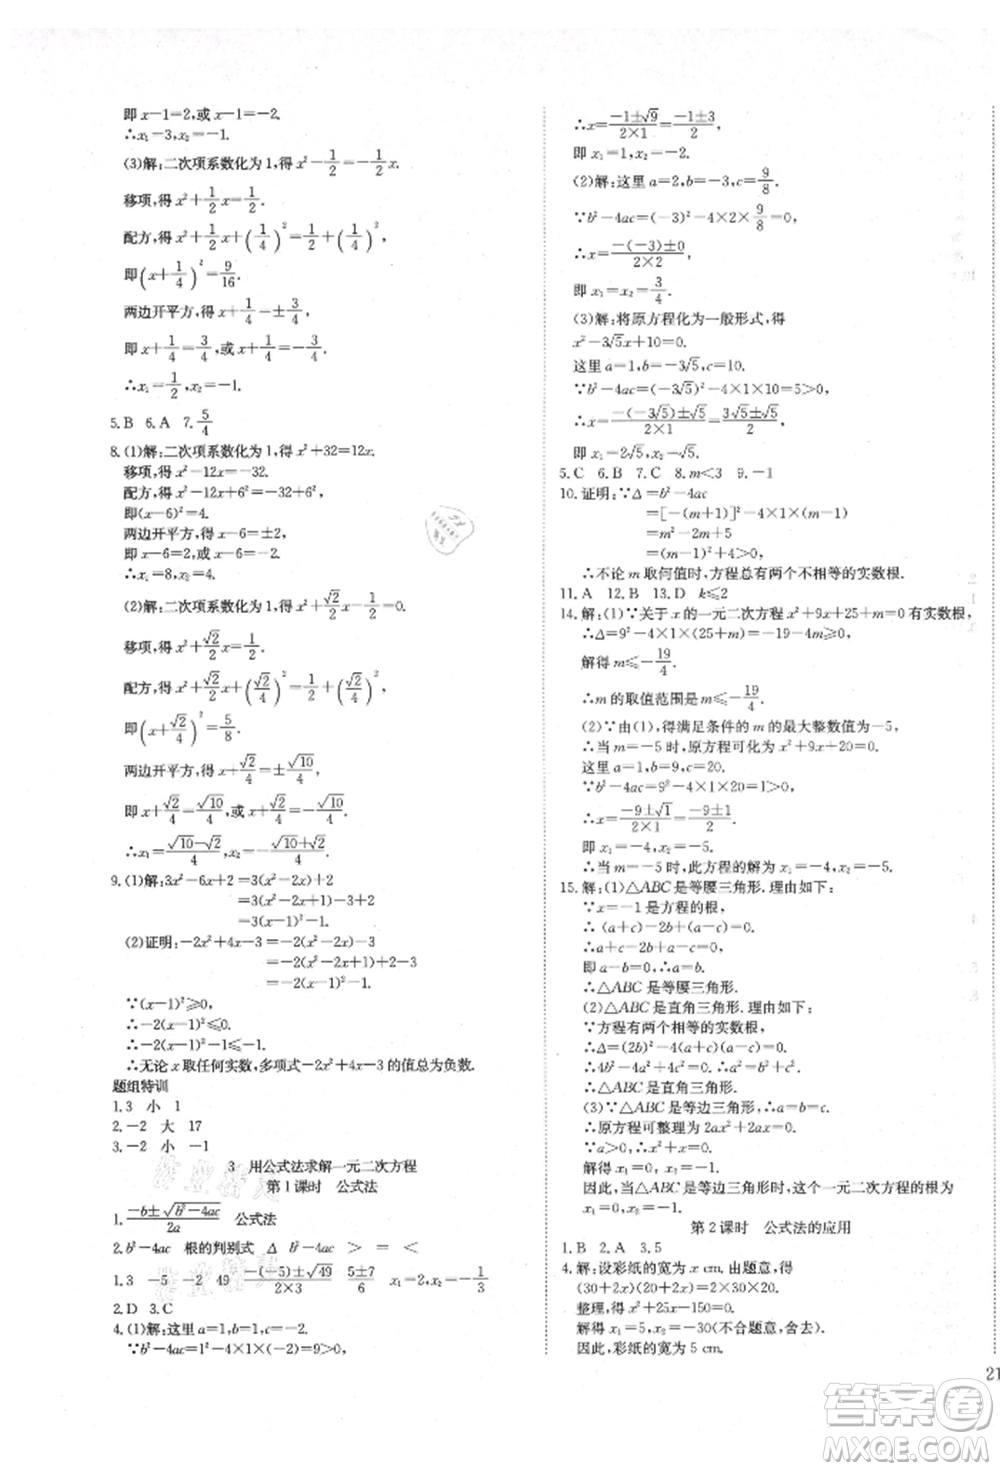 即 x−1=2,或 x−1=−2.
∴x₁=3,x₂=−1.
(3)解:二次项系数化为 1,得 x²−1/2=−1/2x.
移项,得 x²+1/2x=1/2.
配方,得 x²+1/2x+(1/4)²=1/2+(1/4)².
即(x+1/4)²=9/16.
两边开平方,得 x+1/4=±3/4.
即 x+1/4=3/4,或 x+1/4=−3/4.
∴x₁=1/2,x₂=−1.
5.B 6.A 7.5/4
8.(1)解:二次项系数化为 1,得 x²+32=12x.
移项,得 x²−12x=−32.
配方,得 x²−12x+6²=−32+6².
即(x−6)²=4.
两边开平方,得 x−6=±2.
即 x−6=2,或 x−6=−2.
∴x₁=8,x₂=4.
(2)解:二次项系数化为 1,得 x²+√2/2x−1/2=0.
移项,得 x²+√2/2x=1/2.
配方,得 x²+√2/2x+(√2/4)²=1/2+(√2/4)².
即(x+√2/4)²=5/8.
两边开平方,得 x+√2/4=±√10/4.
即 x+√2/4=√10/4,或 x+√2/4=−√10/4.
∴x₁=(√10−√2)/4,x₂=−(√10+√2)/4.
9.(1)解:3x²−6x+2=3(x²−2x)+2
=3(x²−2x+1−1)+2
=3(x−1)²−1.
(2)证明:−2x²+4x−3=−2(x²−2x)−3
=−2(x²−2x+1−1)−3
=−2(x−1)²−1.
∵(x−1)²≥0,
∴−2(x−1)²≤0.
∴−2(x−1)²−1≤−1.
∴无论 x 取任何实数,多项式−2x²+4x−3 的值总为负数.
题组特训
1.3 小 1
2.−2 大 17
3.−2 小 −1
3 用公式法求解一元二次方程
第 1 课时 公式法
1.(−b±√(b²−4ac))/2a 公式法
2.b²−4ac 根的判别式 Δ b²−4ac > = <
1.3 −5 −2 49 (−(−5)±√49)/(2×3) (5±7)/6 x₁=2,x₂=−1/3
2.D 3.C
4.(1)解:这里 a=1,b=1,c=−2.
∵b²−4ac=1²−4×1×(−2)=9>0,
∴x=(−1±√9)/(2×1)=(−1±3)/2,
即 x₁=1,x₂=−2.
(2)解:这里 a=2,b=−3,c=9/8.
∵b²−4ac=(−3)²−4×2×9/8=0,
∴x=(−(−3)±0)/(2×2).
即 x₁=x₂=3/4.
(3)解:将原方程化为一般形式,得
x²−3√5x+10=0.
这里 a=1,b=−3√5,c=10.
∵b²−4ac=(−3√5)²−4×1×10=5>0,
∴x=(−(−3√5)±√5)/(2×1)=(3√5±√5)/2,
即 x₁=2√5,x₂=√5.
5.C 6.B 7.C 8.m<3 9.−1
10.证明:∵Δ=b²−4ac
=[−(m+1)]²−4×1×(m−1)
=m²−2m+5
=(m−1)²+4>0,
∴不论 m 取何值时,方程总有两个不相等的实数根.
11.A 12.B 13.D k≤2
14.解:(1)∵关于 x 的一元二次方程 x²+9x+25+m=0 有实数根,
∴Δ=9²−4×1×(25+m)=−4m−19≥0,
解得 m≤−19/4.
∴m 的取值范围是 m≤−19/4.
(2)∵由(1),得满足条件的 m 的最大整数值为−5,
∴当 m=−5 时,原方程可化为 x²+9x+20=0.
这里 a=1,b=9,c=20.
∵b²−4ac=9²−4×1×20=1>0,
∴x=(−9±√1)/(2×1)=(−9±1)/2.
即 x₁=−4,x₂=−5.
∴当 m=−5 时,此方程的解为 x₁=−4,x₂=−5.
15.解:(1)△ABC 是等腰三角形.理由如下:
∵x=−1 是方程的根,
∴(a+c)−2b+(a−c)=0.
∴a+c−2b+a−c=0.
即 a−b=0,∴a=b.
∴△ABC 是等腰三角形.
(2)△ABC 是直角三角形.理由如下:
∵方程有两个相等的实数根,
∴Δ=(2b)²−4(a+c)(a−c)=0.
∴4b²−4a²+4c²=0.∴a²=b²+c².
∴△ABC 是直角三角形.
(3)∵△ABC 是等边三角形,∴a=b=c.
∴原方程可整理为 2ax²+2ax=0.
∵a≠0,∴x²+x=0.
解得 x₁=0,x₂=−1.
因此,当△ABC 是等边三角形时,这个一元二次方程的根为
x₁=0,x₂=−1.
第 2 课时 公式法的应用
1.B 2.A 3.5
4.解:设彩纸的宽为 x cm.由题意,得
(30+2x)(20+2x)=2×30×20.
整理,得 x²+25x−150=0.
解得 x₁=5,x₂=−30(不合题意,舍去).
因此,彩纸的宽为 5 cm.
21
答案圈
MXQE.COM